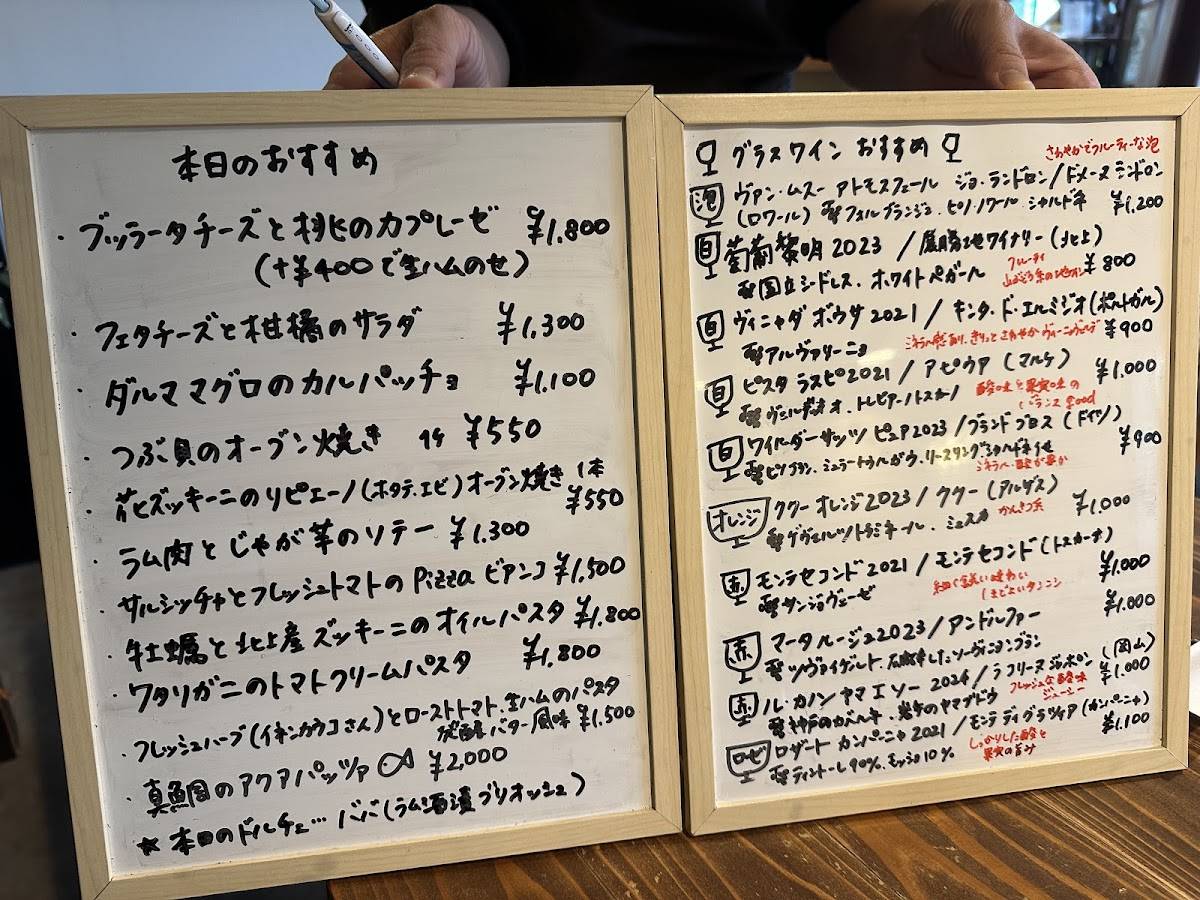 本日のおすすめ
・ブッラータチーズと桃のカプレーゼ ¥1.800
(+¥400で生ハムのせ)
・フェタチーズと柑橘のサラダ ¥1.300
・ダルママグロのカルパッチョ ¥1.100
・つぶ貝のオーブン焼き 1ケ ¥550
・花ズッキーニのリピエーノ(ホタテ.エビ)オーブン焼き 1本 ¥550
・ラム肉とじゃが芋のソテー ¥1.300
・サルシッチャとフレッシュトマトのPizza ビアンコ ¥1,500
・牡蠣と北上産ズッキーニのオイルパスタ ¥1.800
・ワタリガニのトマトクリームパスタ ¥1.800
・フレッシュハーブ(イキンカウコさん)とローストトマト.生ハムのパスタ
発酵バター風味 ¥1.500
・真鯛のアクアパッツァ ¥2,000
★本日のドルチェ… ババ(ラム酒漬ブリオッシュ)
グラスワイン おすすめ
さわやかでフルーティーな泡
泡 ヴァン・ムスー アトモスフェール ジョ・ランドロン/ドメーヌ ランドロン
(ロワール) フォルブランシュ.ピノ・ノワール シャルドネ ¥1,200
白 葡萄黎明2023 /ワイナリー(北上)
国立シードレス.ホワイトペガール ¥800
フルーティ
白 ヴィニャダ ボウサ2021 / キンタ・ド・エルミジオ(ポルトガル)
アルヴァリーニョ ミネラル感あり.きりっと さわやか ヴィーニョヴェルデ ¥900
白 ビスタ ラスピ2021 / アピウア (マルケ) ¥1.000
ヴェルディッキオ.トレビアーノトスカーノ 酸味と果実味の
バランス good
白 ワイルダーサッツ ピュア2023/ブランドブロス (ドイツ)
ピノブラン.ミュラートゥルガウ.リースリング.シャルドネ他 ¥900
ミネラル・酸が豊か
オレンジ ククー オレンジ2023 / ククー (アルザス)
ゲヴェルツトラミネール.ミュスカ かんきつ系 ¥1.000
赤 モンテセコンド2021 / モンテセコンド(トスカーナ)
サンジョヴェーゼ ¥1.000
細く美しい味わい
ほどよいタンニン
赤 マータ ルージュ2023/アンドルファー ¥1.000
ツヴァイゲルト.ソーヴィニヨンブラン
赤 ル・カノン ヤマエソー2024/ラ フリーヌ ジャポン (岡山)
神戸のカベルネ.岩手のヤマブドウ フレッシュな酸味 ¥1.000
ジューシー
ロゼ ロザート カンパーニャ2021 / モンテ ディ グラツィア(カンパーニャ)
ティントーレ90%.モッショ10% ¥1.100
しっかりした酸と
果実の旨み